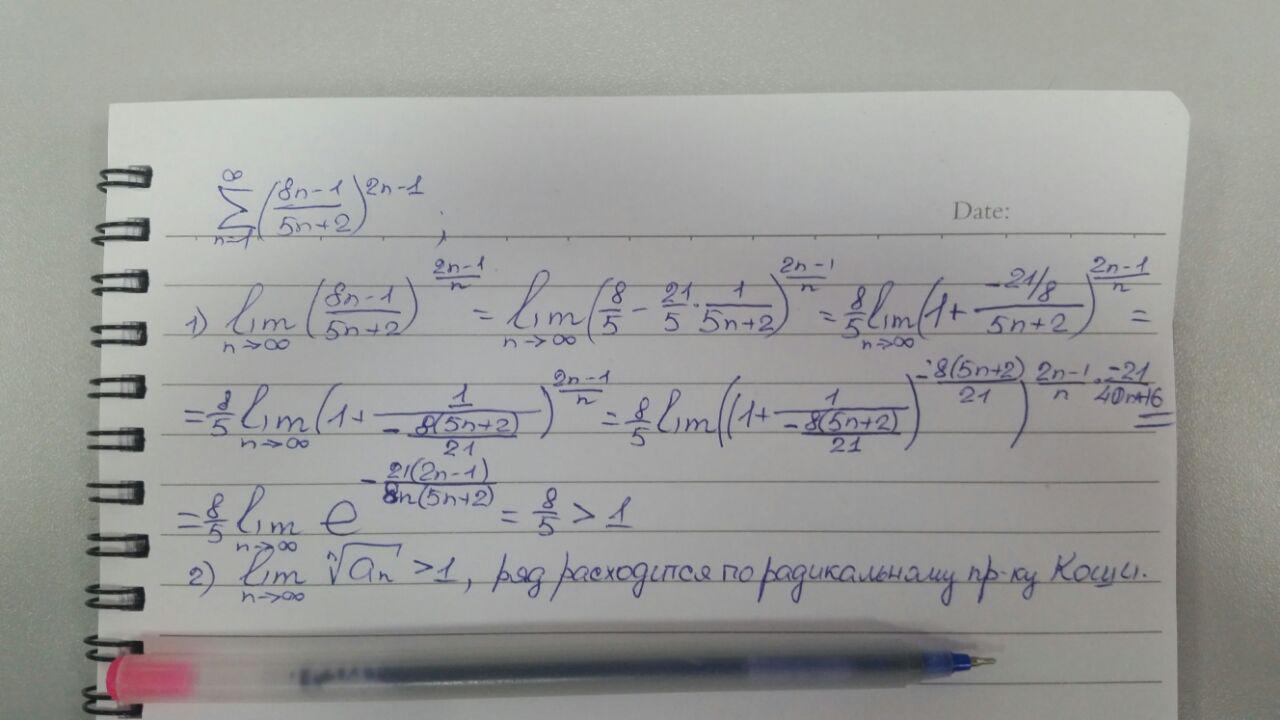 ∑_{n=1}^{∞} ((8n-1)/(5n+2))^{2n-1} ;
Date:
1) lim_{n→∞} ((8n-1)/(5n+2))^{(2n-1)/n} = lim_{n→∞} (8/5 - 21/5 · 1/(5n+2))^{(2n-1)/n} = 8/5 lim_{n→∞} (1 + (-21/8)/(5n+2))^{(2n-1)/n} =
= 8/5 lim_{n→∞} (1 + 1/(-8(5n+2)/21))^{(2n-1)/n} = 8/5 lim ((1 + 1/(-8(5n+2)/21))^{-8(5n+2)/21})^{(2n-1)/n · -21/(40n+16)} =
= 8/5 lim_{n→∞} e^{-21(2n-1)/(8n(5n+2))} = 8/5 > 1
2) lim_{n→∞} ⁿ√a_n > 1, ряд расходится по радикальному пр-ку Коши.